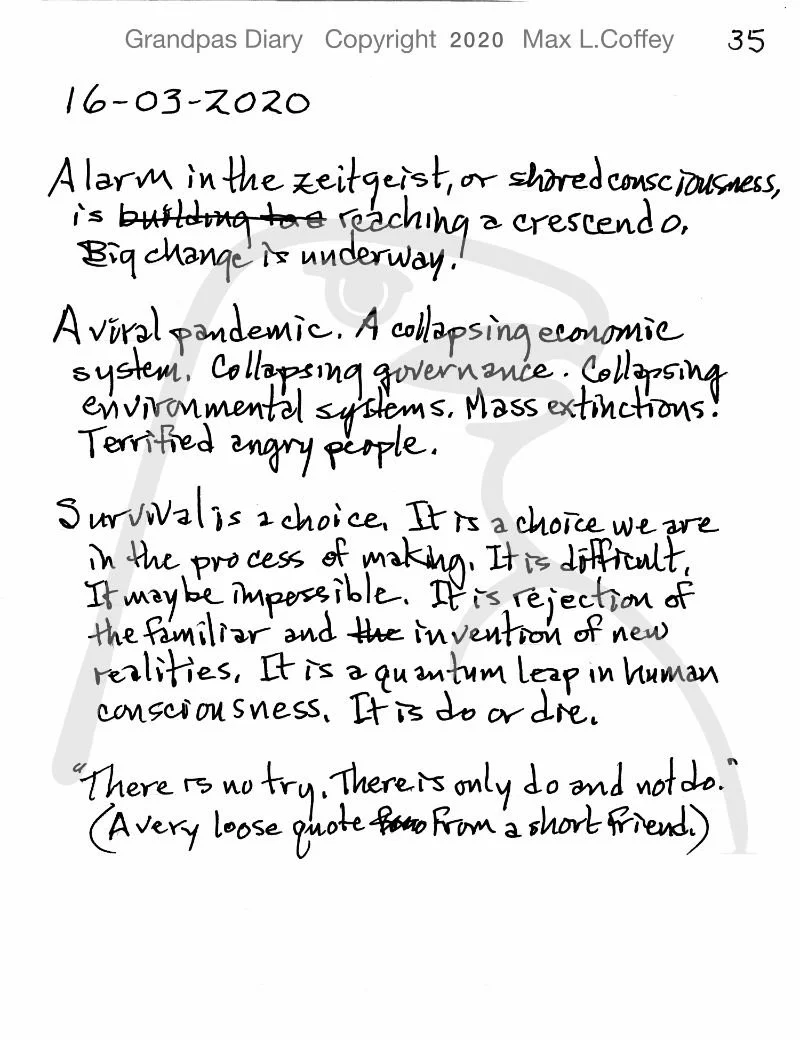 Grandpas Diary Copyright 2020 Max L.Coffey 35
16-03-2020
Alarm in the zeitgeist, or shared consciousness,
is building to a reaching a crescendo.
Big change is underway.
A viral pandemic. A collapsing economic
system. Collapsing governance. Collapsing
environmental systems. Mass extinctions.
Terrified angry people.
Survival is a choice. It is a choice we are
in the process of making. It is difficult.
It may be impossible. It is rejection of
the familiar and the invention of new
realities. It is a quantum leap in human
consciousness. It is do or die.
"There is no try. There is only do and not do."
(A very loose quote from a short friend.)